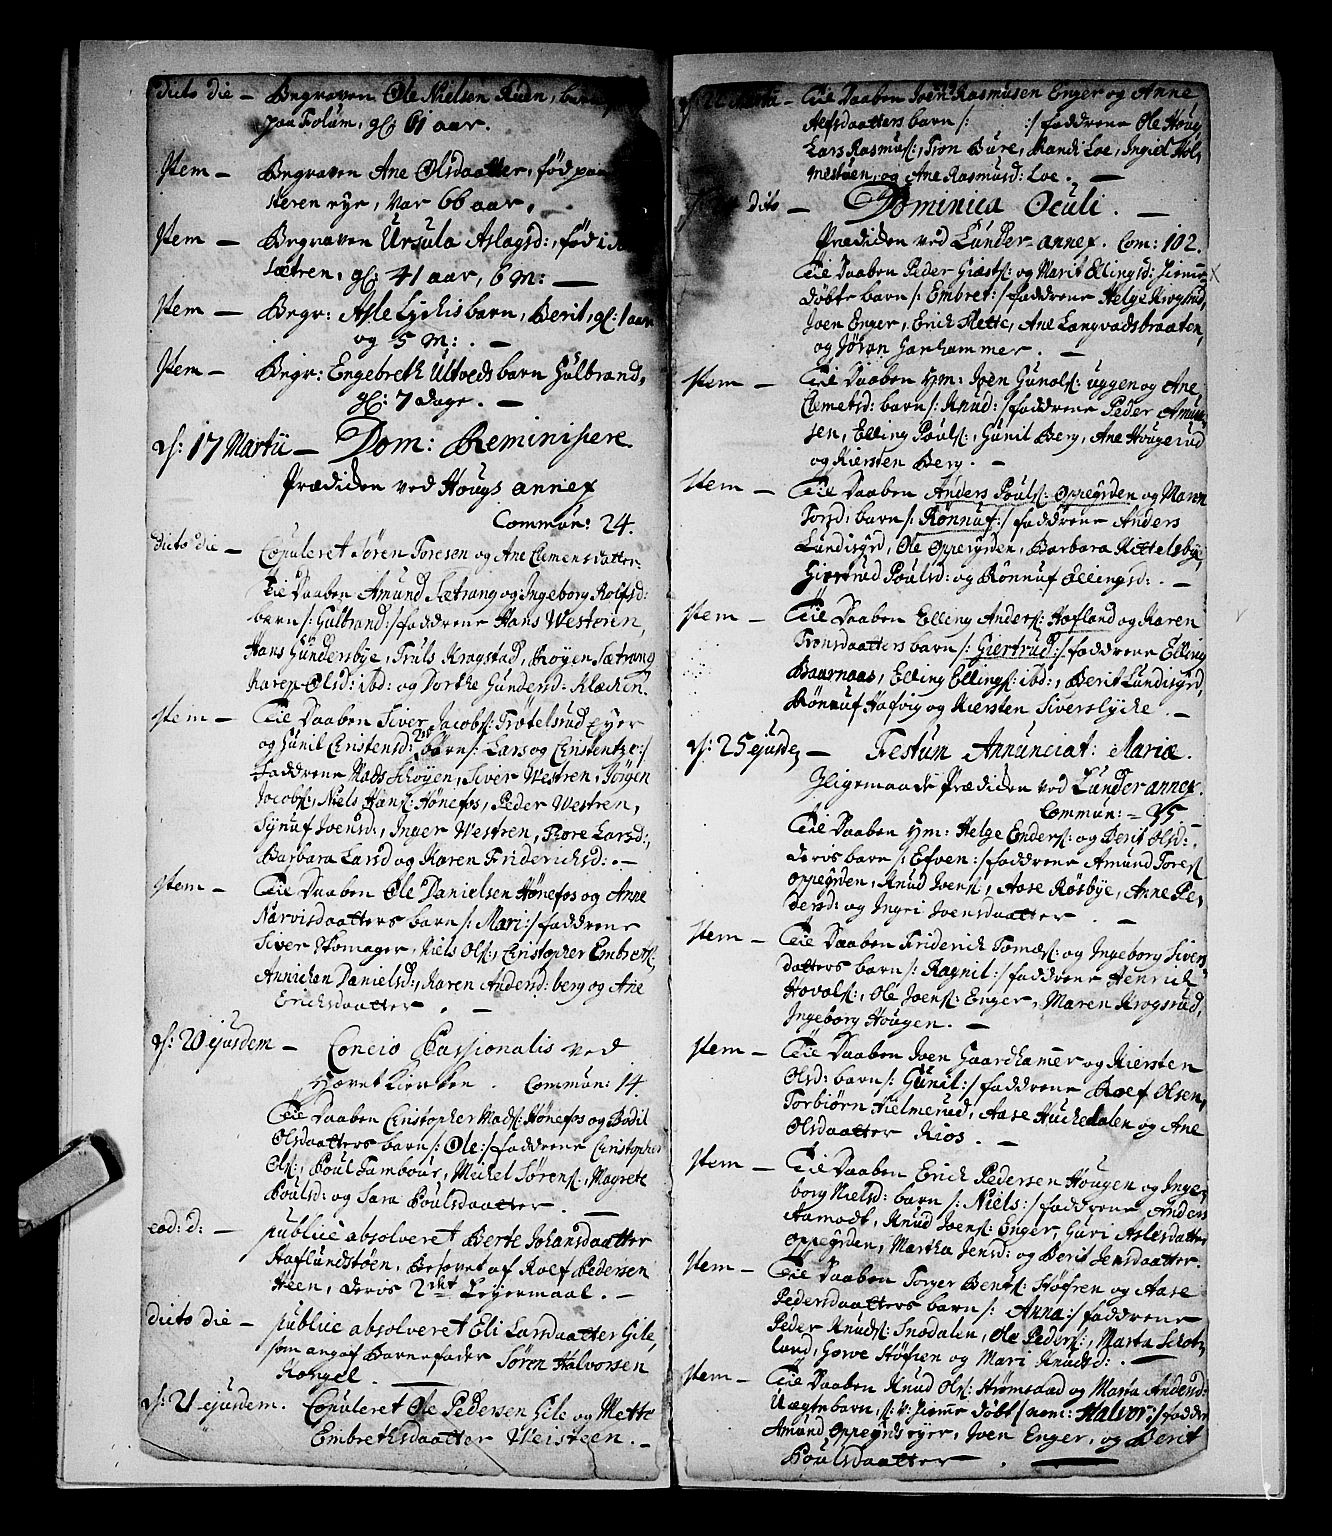 dito die – Begraven Ole Nielsen Ruen,
paa Folum, gl: 61 aar.
Item – Begraven Ane Olsdaatter, fød paa
steren eye, var 66 aar. –
Item – Begraven Ursula Aslagsd:, fød i
Sætren, gl: 41 aar, 6 M: –
Item – Begr: Asle Lychis barn, Berit, gl: 1 aar
og 5 M: . –
Item – Begr: Engebreth Ultveds barn Gulbrand,
gl: 7 dage. –
d: 17 Martii – Dom: Reminiscere
Prædiken ved Hougs annex
Commun: 24.
dito die – Copuleret Søren Toresen og Ane Clemensdatter.
Item Døbt Daaben Amund Sætrang og Ingeborg Rolfsd:
barn /: Gulbrand :/ faddrene Hans Westeren,
Hans Gundersbye, Truls Kragstad, Sætrang
Karen Olsd: ibd: og Dorthe Gundersd: Klæchen.
Item – Daaben Siver Jacobs: Trøtelsrud eyer
og Gunil Cristensd: 2de børn /: Lars og Cristentze :/
Faddrene Mads Schøyen, Siver Westren, Jørgen
Jacobs:, Niels Hans: Hønefos, Peder Westren,
Synuf Joensd:, Inger Westren, Tore Larsd:,
Barbara Larsd og Karen Friderichsd: . –
Item – Daaben Ole Danielsen Hønefos og Anne
Narvisdaatters barn /: Mari :/ faddrene
Siver Skomager, Niels Ols:, Cristopher Embrets:,
Annichen Danielsd:, Karen Andersd: berg og Ane
Ericksdaatter . –
d: 20 ejusdem – Concio Passionalis ved
Hovet kierken . Commun: 14.
Daaben Cristopher Mads: Hønefos og Bodil
Olsdaatters barn /: Ole :/ faddrene Cristopher
Ols:, Poul Tambour, Michel Sørens:, Magrete
Poulsd: og Sara Poulsdaatter. –
eod: d: – publice absolveret Berte Johansdaatter
Haflundstøen, Besovet af Roef Pedersen
Heen, deris 2det Leyermaal . –
dito die – publice absolveret Eli Larsdaatter Gile,
som angaf Barnefader Søren Halvorsen
–
d: 21 ejusdem. Copuleret Ole Pedersen Gile og Mette
Embrethsdaatter Weisteen . –
d: 22 Martii – Daaben Joen Rasmusen Enger og Anne
Alfsdaatters barn /: :/ faddrene Ole Houg
Lars Rasmus:, Tron Bure, Randi Loe, Ingeld Hol,
mestøen, og Ane Rasmusd: Loe. –
dito – Dominica Oculi . –
Prædiken ved Lunder annex. Com: 102.
Daaben Peder Giæst: og Marit Ellingsd: hieme
døbte barn /: Embret :/ faddrene Helge Krogsrud,
Joen Enger, Erich Flette, Ane Langvadsbraaten,
og Jøran Ganhammer . –
Item – Daaben Hm: Iver Gunols: uggen og Ane
Clemetsd: barn /: Knud :/ faddrene Peder Amun
sen, Elling Pouls:, Gunil Berg, Ane Hougerud
og Kiersten Berg . –
Item – Daaben Anders Pouls: Oppegrden og Maren
Torsd: barn /: Rønnuf :/ faddrene Anders
Lundesgrd, Ole Oppegrden, Barbara Kittelsbye,
Giertrud Poulsd: og Rønnuf Ellingsd: . –
Item – Daaben Elling Anders: Hafland og Karen
Tronsdaatters barn /: Giertrud :/ faddrene Elling
Baarnaas, Elling Ellings: ibd:, Berit Lundesgrd,
Rønnuf Hafvig og Kiersten Siverslycke . –
d: 25 ejusd. – Festum Annunciat: Mariæ
Ligemaade Prædiken ved Lunder annex.
Commun: = 95 –
Daaben Hm: Helge Enders: og Berit Olsd:,
deris barn /: Efven :/ faddrene Amund Tores:
Oppegrden, Knud Joens:, Aase Røsbye, Anne Pe,
dersd: og Ingri Joensdaatter . –
Item – Daaben Friderich Tomes: og Ingeborg Sivers
datters barn /: Ragnil :/ faddrene Henrich
Hovols:, Ole Joens: Enger, Maren Krogsrud,
Ingeborg Hougen . –
Item – Daaben Joen Gaardhamer og Kiersten
Olsd: barn /: Gunil :/ faddrene Roef Olsen,
Torbiørn Hielmerud, Aase Huchedalen og Ane
Olsdaatter Kios . –
Item – Daaben Erich Pedersen Hougen og Inge,
borg Nielsd: barn /: Niels :/ faddrene Anders
Aamodt, Knud Joens: Enger, Guri Aslesdatter
Oppegrden, Martha Jensd: og Berit Jensdaatter.
Item – Daaben Torger Bents: Høfsen og Aase
Pedersdaatters barn /: Anna :/ faddrene
Peder Knuds: Snodalen, Ole Peders:, Marta Schot,
land, Gowe Høfsen og Mari Knudsd: . –
Item – Daaben Knud Ols: Strømsaad og Marta Andersd:
Uægte barn, /: v: hieme døbt / nom: Halvor :/ faddr
Amund Oppegrds eyer, Joen Enger, og Berit
Poulsdaatter . –